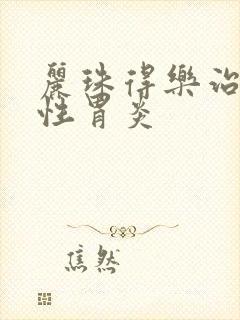 麗珠得樂治
性胃炎
焦然